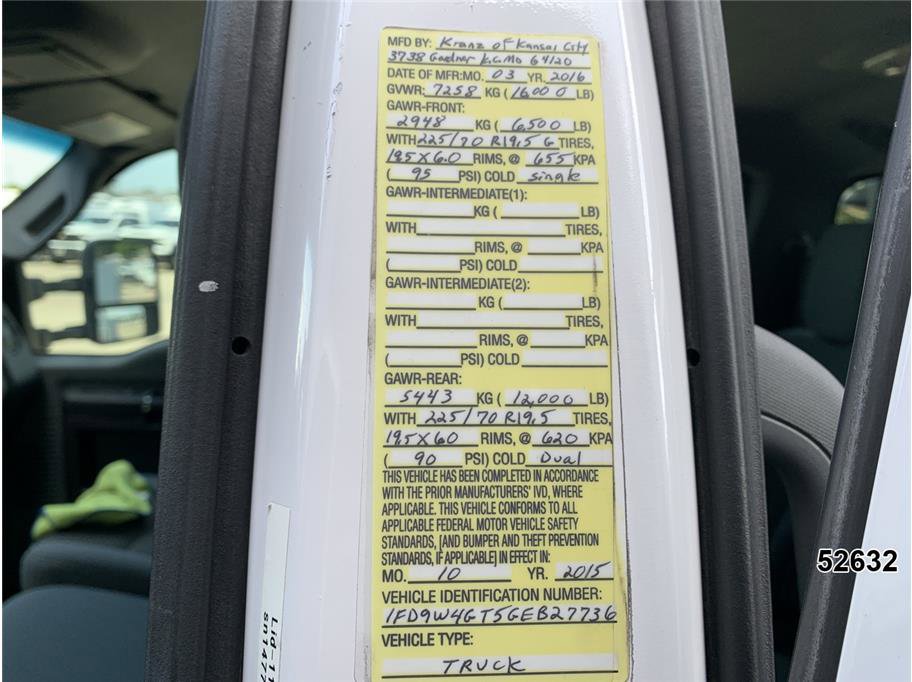 MFD BY: Kranz of Kansas City
3738 Gardner K.C. Mo 64120
DATE OF MFR: MO. 03 YR. 2016
GVWR: 7258 KG (16000 LB)
GAWR-FRONT:
2948 KG ( 6,500 LB)
WITH 225/70 R19,5 G TIRES,
19.5 X 6.0 RIMS, @ 655 KPA
( 95 PSI) COLD single
GAWR-INTERMEDIATE(1):
KG ( LB)
WITH TIRES,
RIMS, @ KPA
( PSI) COLD
GAWR-INTERMEDIATE(2):
KG ( LB)
WITH TIRES,
RIMS, @ KPA
( PSI) COLD
GAWR-REAR:
5443 KG ( 12,000 LB)
WITH 225/70 R19,5 TIRES,
19.5 X 60 RIMS, @ 620 KPA
( 90 PSI) COLD Dual
THIS VEHICLE HAS BEEN COMPLETED IN ACCORDANCE
WITH THE PRIOR MANUFACTURERS' IVD, WHERE
APPLICABLE. THIS VEHICLE CONFORMS TO ALL
APPLICABLE FEDERAL MOTOR VEHICLE SAFETY
STANDARDS, [AND BUMPER AND THEFT PREVENTION
STANDARDS, IF APPLICABLE] IN EFFECT IN:
MO. 10 YR. 2015
VEHICLE IDENTIFICATION NUMBER:
1FD9W4GT5GEB27736
VEHICLE TYPE:
TRUCK
52632